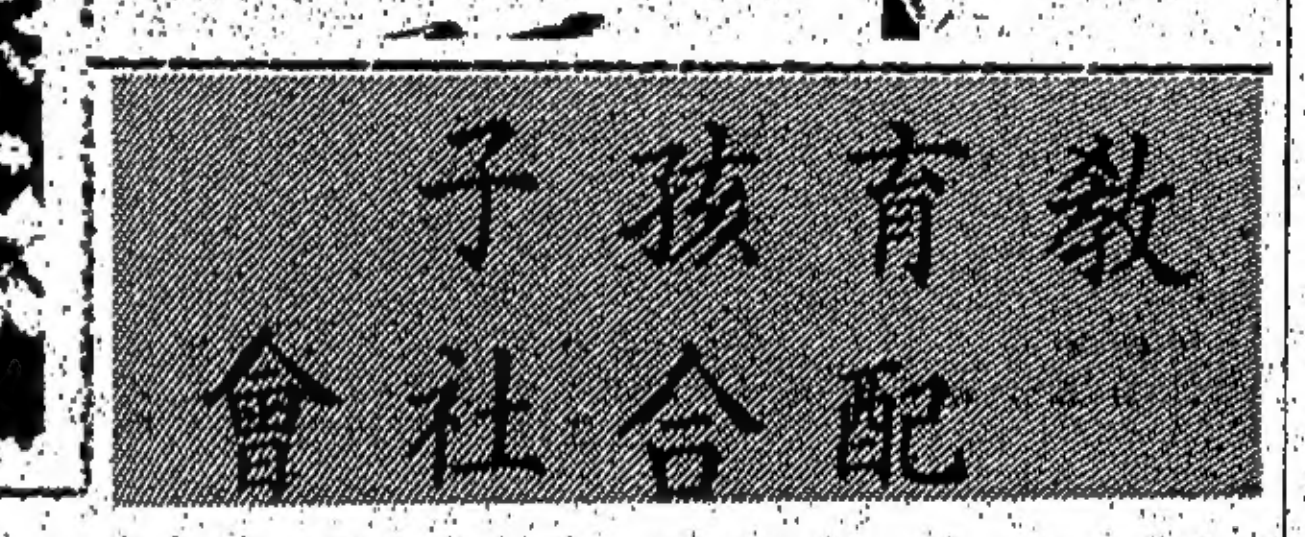 教育孩子
配合社會